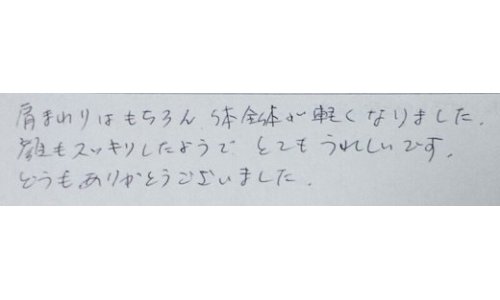 肩まわりはもちろん、体全体が軽くなりました。
顔もスッキリしたようで とてもうれしいです。
どうもありがとうございました。